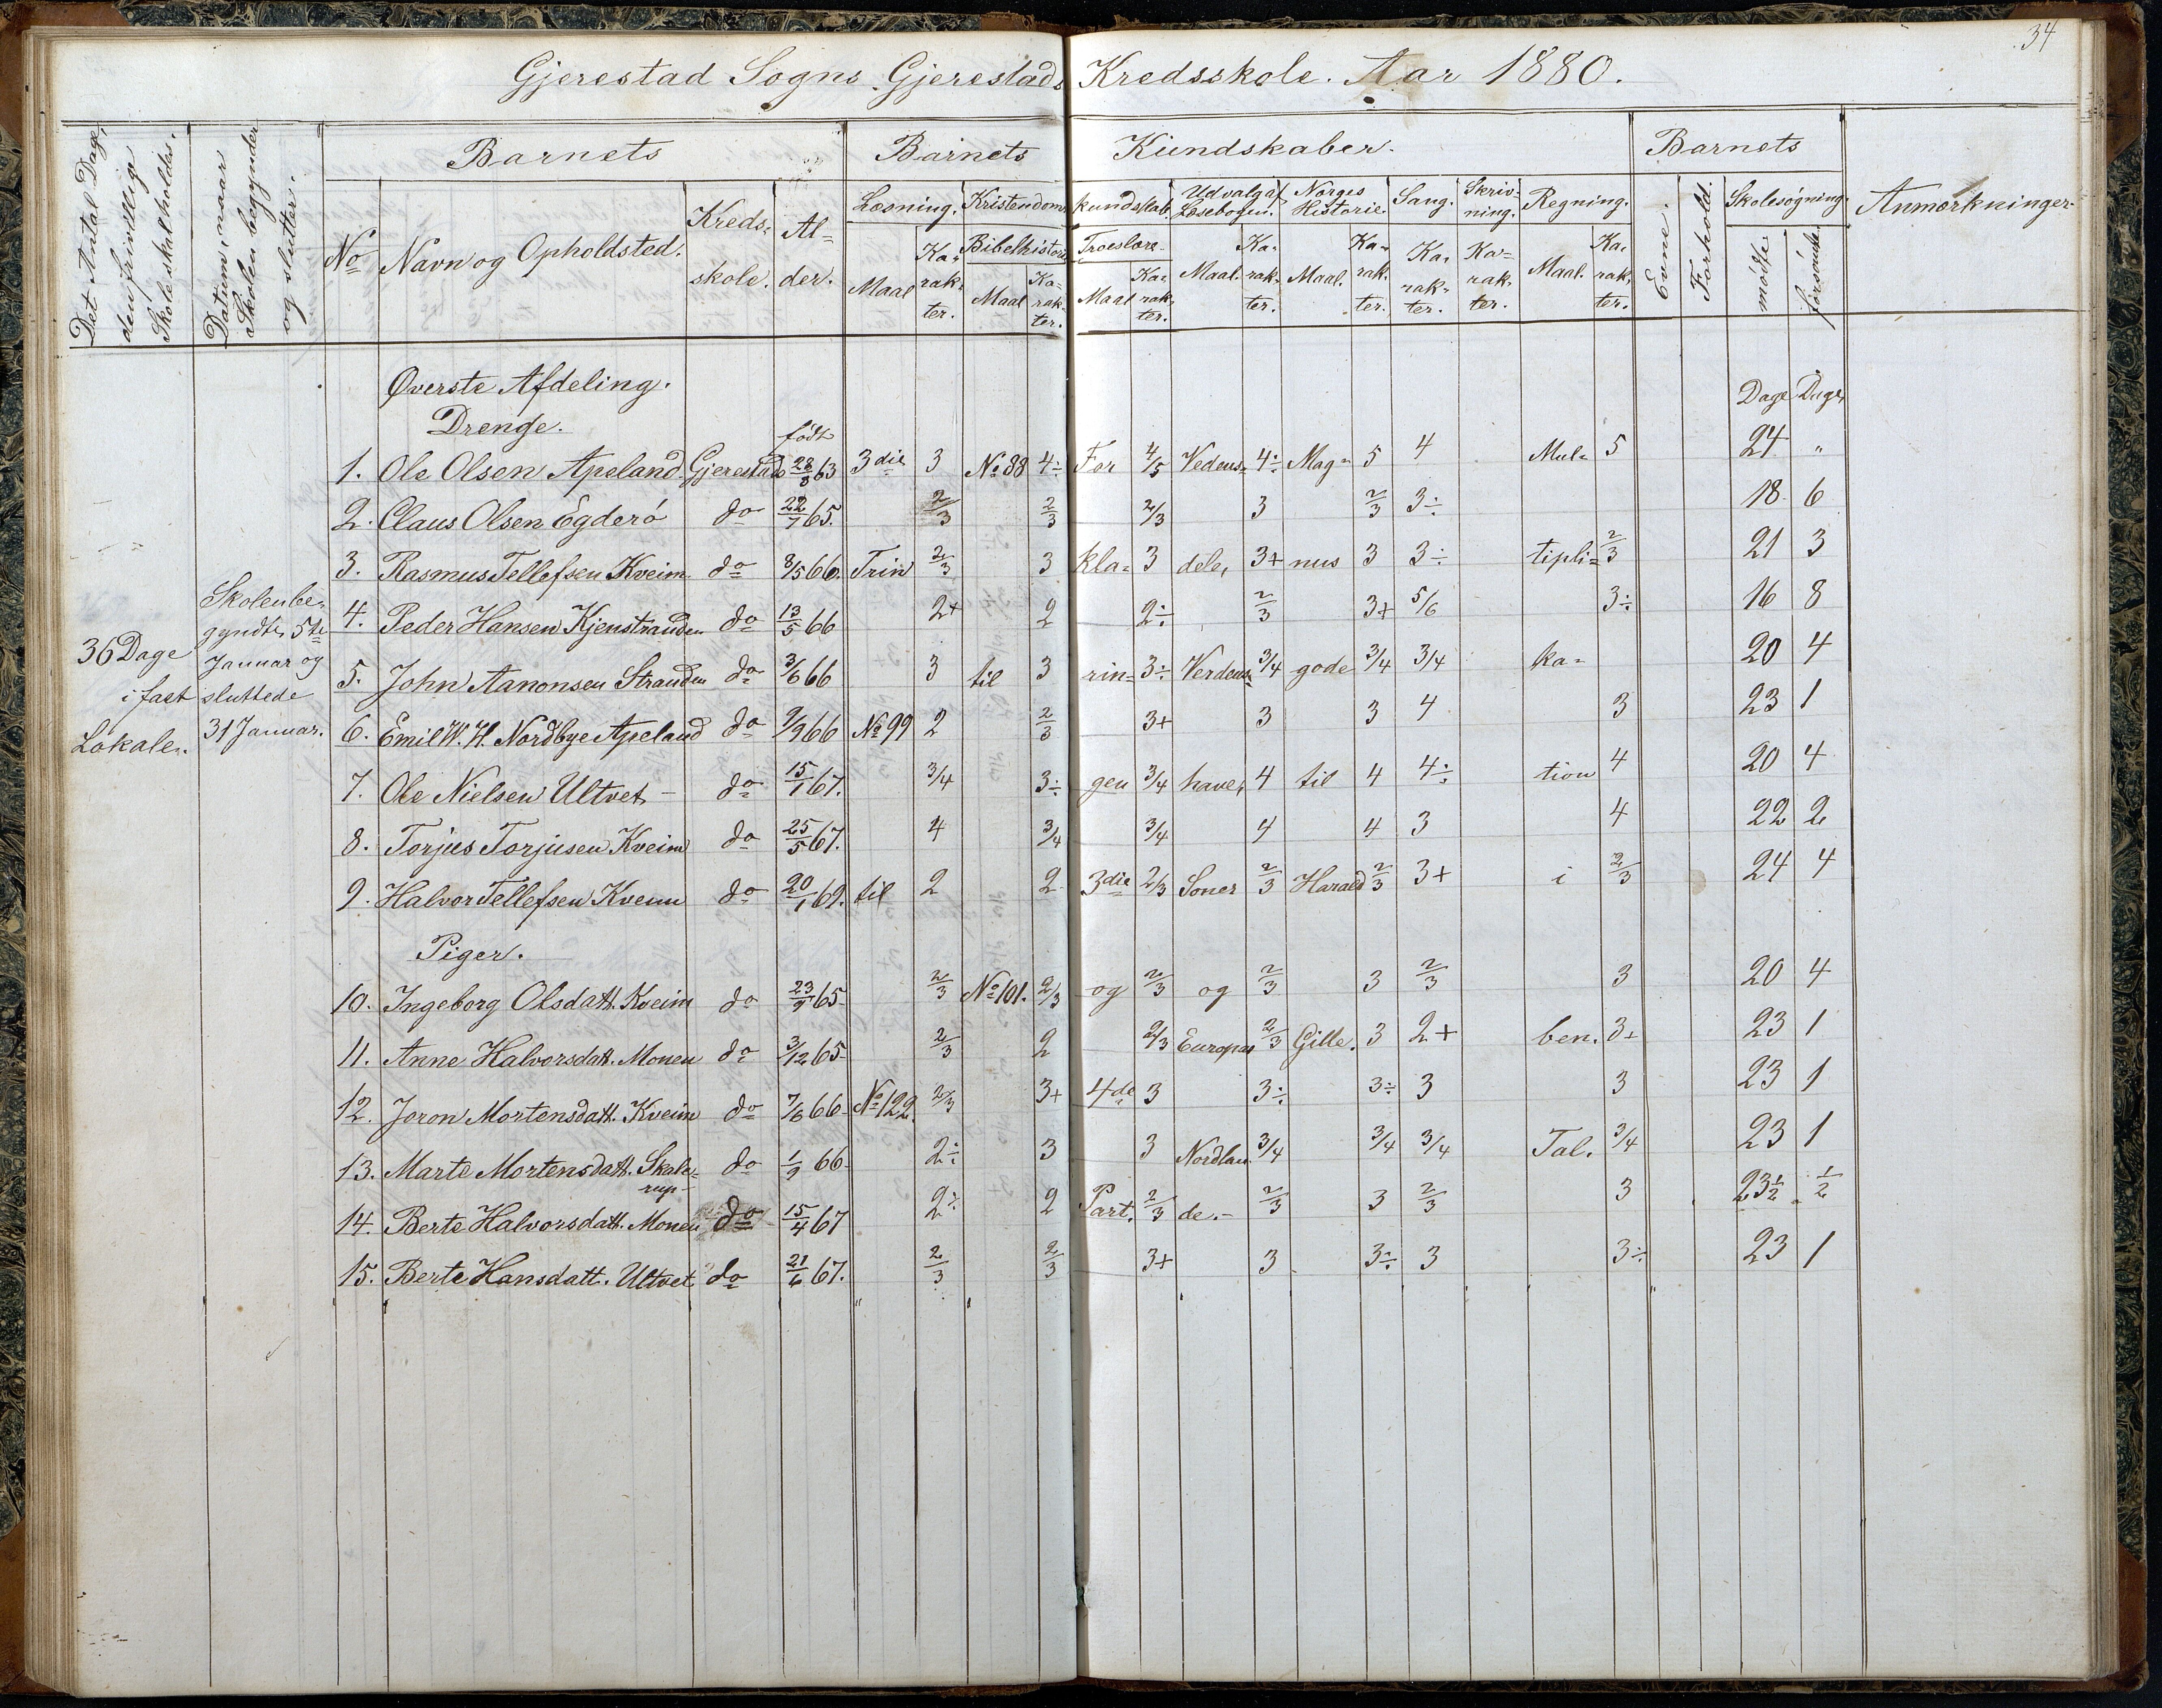 34
Gjerestad Sogns Gjerestads Kredsskole. Aar 1880.
Det Antal Dage, den frivillige Skole skal holdes.
Datum, naar Skolen begynder og slutter.
Barnets
Barnets Kundskaber.
Barnets
Anmærkninger
No Navn og Opholdsted. Kreds- skole. Al- der.
Læsning. Kristendoms kundskab. Udvalg af Læsebogen. Norges Historie. Sang. Skriv- ning. Regning. Evne. Forhold. Skolesøgning.
Bibelhistorie Troeslære
Maal Ka- rak- ter. Maal Ka- rak- ter. Maal Ka- rak- ter. Maal. Ka- rak- ter. Maal. Ka- rak- ter. Ka- rak- ter. Ka- rak- ter. Maal. Ka- rak- ter. mødte forsømte
Øverste Afdeling.
Drenge.
født
Dage Dage
1. Ole Olsen Apeland Gjerestad 28/8 63 3die 3 No 88 4÷ For 4/5 Vedens- 4÷ Mag- 5 4 Mul- 5 24 "
2. Claus Olsen Egderö do 22/7 65. 2/3 2/3 2/3 3 2/3 3÷ 18 6
3. Rasmus Tellefsen Kveim do 8/5 66. Trin 2/3 3 kla- 3 dele, 3+ nus 3 3÷ tipli- 2/3 21 3
4. Peder Hansen Kjenstranden do 13/5 66 2+ 2 2÷ 2/3 3+ 5/6 3÷ 16 8
5. John Aanonsen Stranden do 3/6 66 3 til 3 rin- 3÷ Verdens- 3/4 gode 3/4 3/4 ka- 20 4
6. Emil W. H. Nordbye Apeland do 9/9 66 No 99 2 2/3 3+ 3 3 4 3 23 1
7. Ole Nielsen Ultvet do 15/1 67. 3/4 3÷ gen 3/4 have, 4 til 4 4÷ tion 4 20 4
8. Torjus Torjusen Kveim do 25/5 67. 4 3/4 3/4 4 4 3 4 22 2
9. Halvor Tellefsen Kveim do 20/1 69. til 2 2 3die 2/3 Soner 2/3 Harald 2/3 3+ i 2/3 24 4
36 Dage i fast Lokale.
Skolen be- gyndte 5te Januar og sluttede 31 Januar.
Piger.
10. Ingeborg Olsdatt. Kveim do 23/9 65 2/3 No 101. 2/3 og 2/3 og 2/3 3 2/3 3 20 4
11. Anne Halvorsdatt. Monen do 3/12 65 2/3 2 2/3 Europas 2/3 Gille. 3 2+ ben. 3+ 23 1
12. Joron Mortensdatt. Kveim do 7/6 66 No 122. 2/3 3+ 4de 3 3÷ 3÷ 3 3 23 1
13. Marte Mortensdatt. Skale- rup do 1/9 66 2÷ 3 3 Nordlan. 3/4 3/4 3/4 Tal. 3/4 23 1
14. Berte Halvorsdatt. Monen do 15/4 67 2÷ 2 Part. 2/3 de. 2/3 3 2/3 3 23½ ½
15. Berte Hansdatt. Ultvet do 21/6 67. 2/3 2/3 3+ 3 3÷ 3 3÷ 23 1